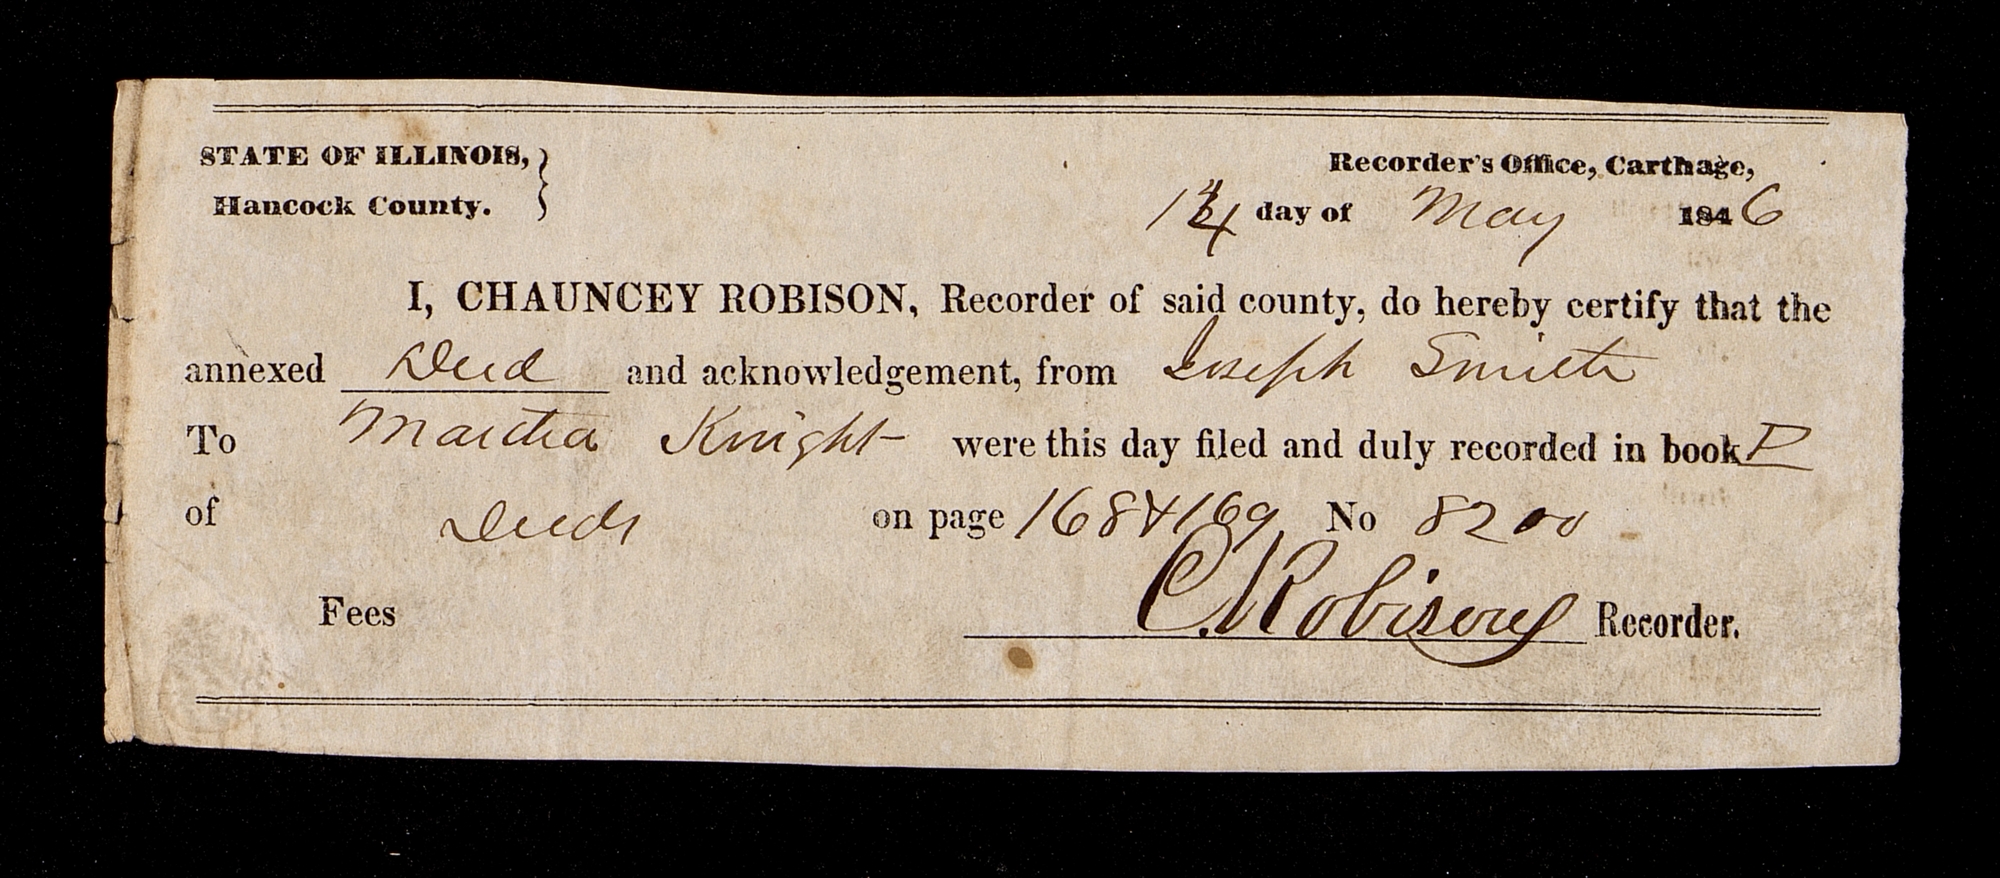 STATE OF ILLINOIS, }
Hancock County.
Recorder's Office, Carthage,
14 day of May 1846
I, CHAUNCEY ROBISON, Recorder of said county, do hereby certify that the
annexed Deed and acknowledgement, from Joseph Smith
To Martha Knight were this day filed and duly recorded in book P
of Deeds on page 168 & 169 No 8200
Fees C. Robison Recorder.